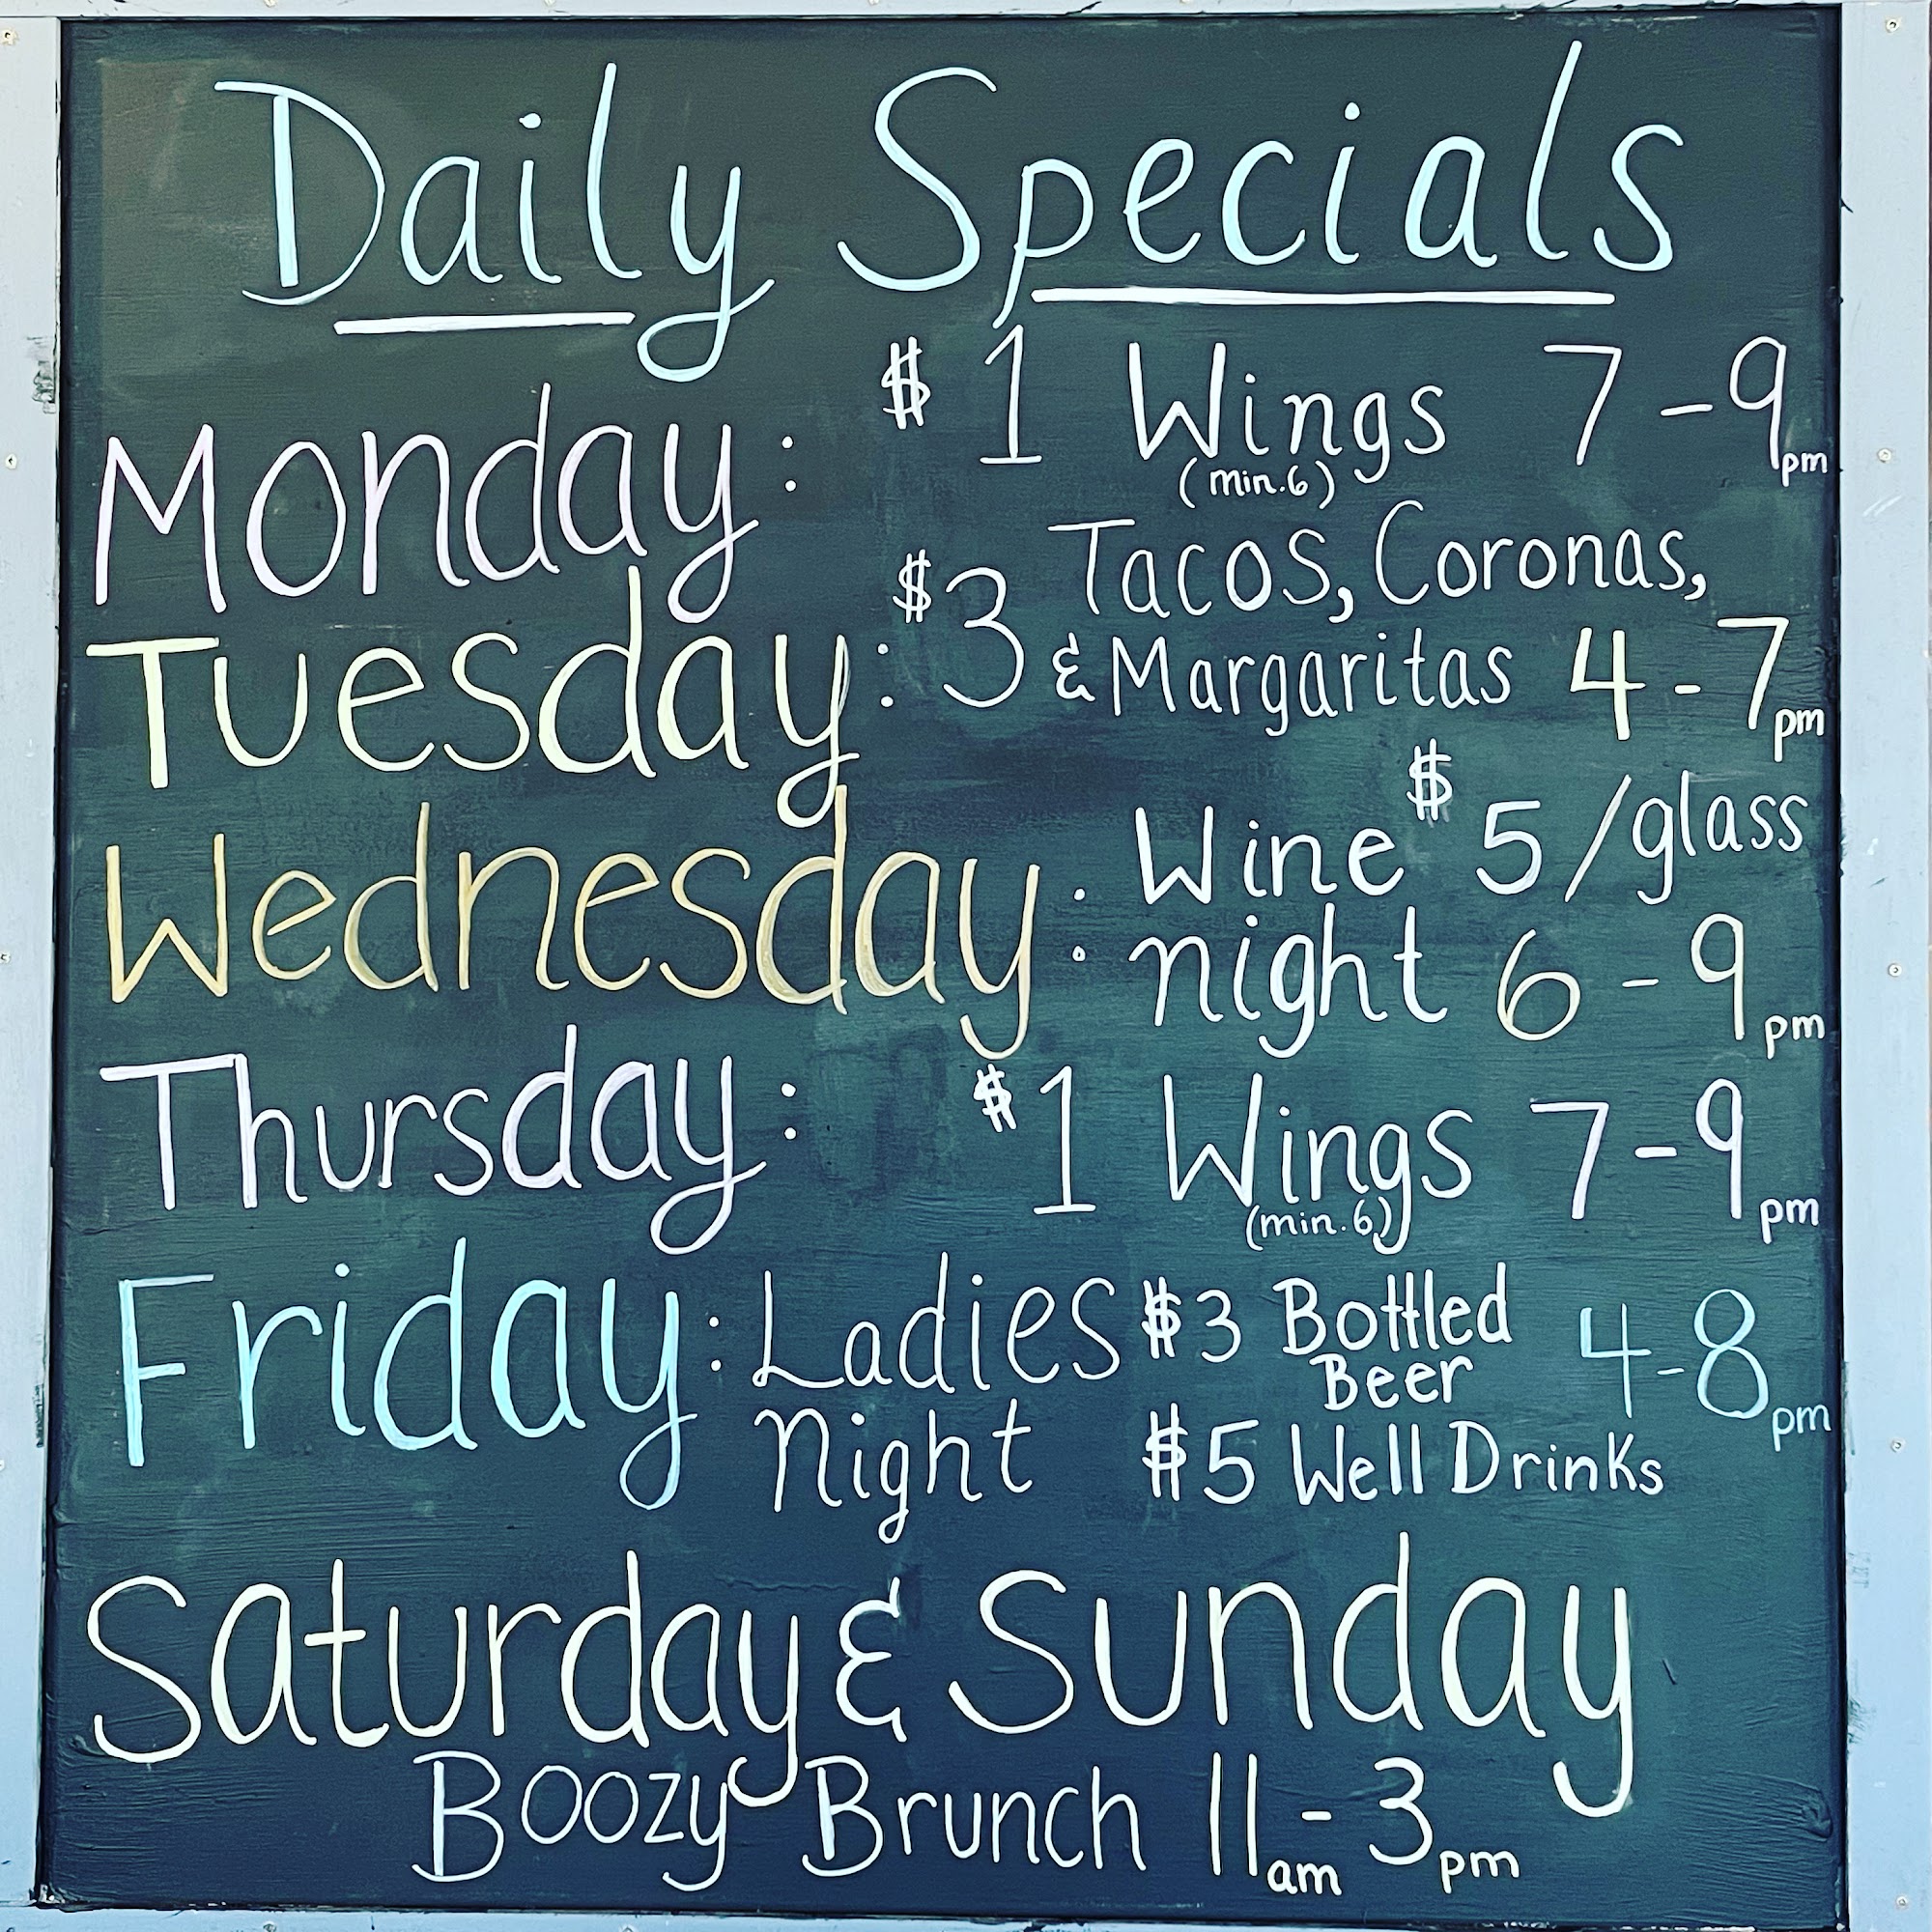 Daily Specials
Monday: $1 Wings 7-9pm
(min.6)
Tuesday: $3 Tacos, Coronas,
& Margaritas 4-7pm
Wednesday: Wine $5/glass
night 6-9pm
Thursday: $1 Wings 7-9pm
(min.6)
Friday: Ladies $3 Bottled 4-8pm
Beer
Night $5 Well Drinks
Saturday & Sunday
Boozy Brunch 11am-3pm